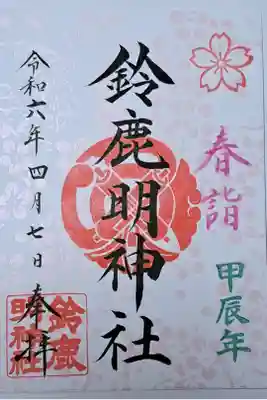 春詣
甲辰年
鈴鹿明神社
令和六年四月七日奉拝
鈴鹿
明神社